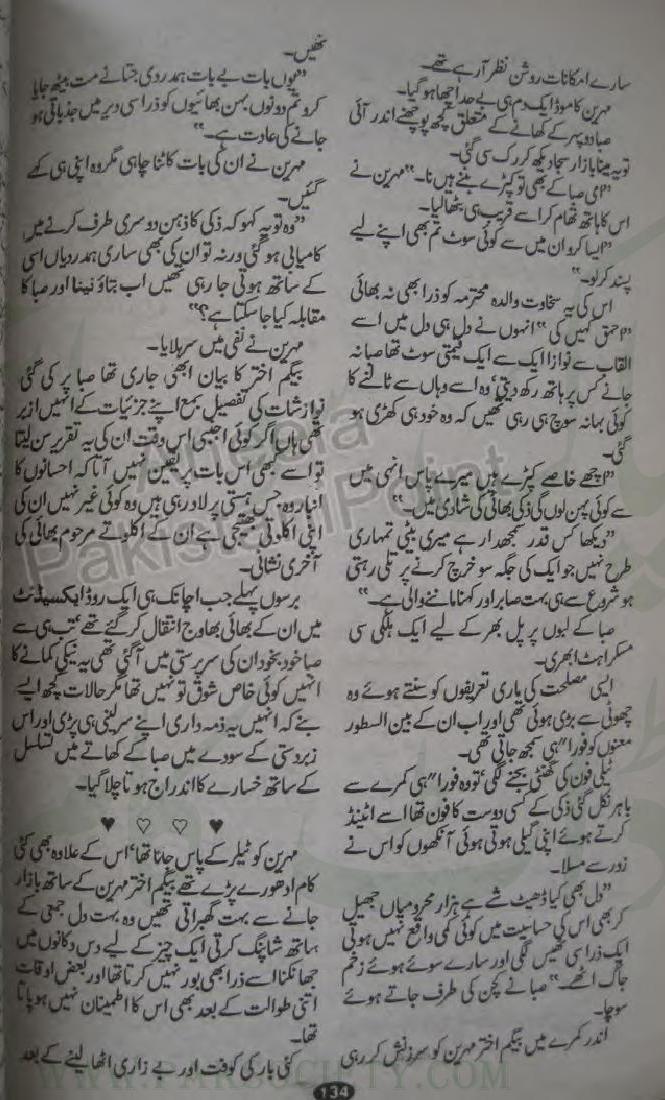 سارے امکانات روشن نظر آرہے تھے۔
مہرین کا موڈ ایک دم ہی بے حد اچھا ہو گیا۔
صبا دوپہر کے کھانے کے متعلق کچھ پوچھنے اندر آئی
تو یہ مینا بازار سجا دیکھ کر رک سی گئی۔
"امی صبا کے بھی تو کپڑے بننے ہیں نا۔" مہرین نے
اس کا ہاتھ تھام کر اسے قریب ہی بٹھا لیا۔
"ایسا کرو ان میں سے کوئی سوٹ تم بھی اپنے لیے
پسند کر لو۔"
اس کی یہ سخاوت والدہ محترمہ کو ذرا بھی نہ بھائی
"احمق کہیں کی" انہوں نے دل ہی دل میں اسے
القاب سے نوازا ایک سے ایک قیمتی سوٹ تھا صبا نہ
جانے کس پر ہاتھ رکھ دیتی' وہ اسے وہاں سے ٹالنے کا
کوئی بہانہ سوچ ہی رہی تھیں کہ وہ خود ہی کھڑی ہو
گئی۔
"اچھے خاصے کپڑے ہیں میرے پاس انہی میں
سے کوئی پہن لوں گی ذکی بھائی کی شادی میں۔"
"دیکھا کس قدر سمجھدار ہے میری بیٹی تمہاری
طرح نہیں جو ایک کی جگہ سو خرچ کرنے پر تلی رہتی
ہو شروع سے ہی بہت صابر اور کہنا ماننے والی ہے۔"
صبا کے لبوں پر پل بھر کے لیے ایک ہلکی سی
مسکراہٹ ابھری۔
ایسی مصلحت کی ماری تعریفوں کو سنتے ہوئے وہ
چھوٹی سے بڑی ہوئی تھی اور اب ان کے بین السطور
معنوں کو فورا" ہی سمجھ جاتی تھی۔
ٹیلی فون کی گھنٹی بجنے لگی' تو وہ فورا" ہی کمرے سے
باہر نکل گئی ذکی کے کسی دوست کا فون تھا اسے اٹینڈ
کرتے ہوئے اپنی گیلی ہوتی ہوئی آنکھوں کو اس نے
زور سے مسلا۔
"دل بھی کیا ڈھیٹ شے ہے ہزار محرومیاں جھیل
کر بھی اس کی حساسیت میں کوئی کمی واقع نہیں ہوتی
ایک ذرا سی ٹھیس لگی اور سارے سوئے ہوئے زخم
جاگ اٹھے۔" صبا نے کچن کی طرف جاتے ہوئے
سوچا۔
اندر کمرے میں بیگم اختر مہرین کو سرزنش کر رہی
تھیں۔
"یوں بات بے بات ہمدردی جتانے مت بیٹھ جایا
کرو تم دونوں بہن بھائیوں کو ذرا سی دیر میں جذباتی ہو
جانے کی عادت ہے۔"
مہرین نے ان کی بات کاٹنا چاہی مگر وہ اپنی ہی کہے
گئیں۔
"وہ تو یہ کہو کہ ذکی کا ذہن دوسری طرف کرنے میں
کامیابی ہو گئی ورنہ تو ان کی بھی ساری ہمدردیاں اسی
کے ساتھ ہوتی جا رہی تھیں اب بتاؤ نینا اور صبا کا
مقابلہ کیا جا سکتا ہے؟"
مہرین نے نفی میں سر ہلایا۔
بیگم اختر کا بیان ابھی جاری تھا صبا پر کی گئی
نوازشات کی تفصیل بمع اپنے جزئیات کے انہیں ازبر
تھی ہاں اگر کوئی اجنبی اس وقت ان کی یہ تقریر سن لیتا
تو اسے کبھی اس بات پر یقین نہیں آتا کہ احسانوں کا
انبار وہ جس ہستی پر لاد رہی ہیں وہ کوئی غیر نہیں ان کی
اپنی اکلوتی بھتیجی ہے ان کے اکلوتے مرحوم بھائی کی
آخری نشانی۔
برسوں پہلے جب اچانک ہی ایک روڈ ایکسیڈنٹ
میں ان کے بھائی بھاوج انتقال کر گئے تھے' تب ہی سے
صبا خود بخود ان کی سرپرستی میں آ گئی تھی یہ نیکی کمانے کا
انہیں کوئی خاص شوق تو نہیں تھا مگر حالات کچھ ایسے
بنے کہ انہیں یہ ذمہ داری اپنے سر لینی ہی پڑی اور اس
زبردستی کے سودے میں صبا کے کھاتے میں تسلسل
کے ساتھ خسارے کا اندراج ہوتا چلا گیا۔
♥ ♡ ♡ ♥
مہرین کو ٹیلر کے پاس جانا تھا' اس کے علاوہ بھی کئی
کام ادھورے پڑے تھے بیگم اختر مہرین کے ساتھ بازار
جانے سے بہت گھبراتی تھیں وہ بہت دل جمعی کے
ساتھ شاپنگ کرتی ایک چیز کے لیے دس دکانوں میں
جھانکنا اسے ذرا بھی بور نہیں کرتا تھا اور بعض اوقات
اتنی طوالت کے بعد بھی اس کا اطمینان نہیں ہو پاتا
تھا۔
کئی بار کی کوفت اور بے زاری اٹھا لینے کے بعد
134
WWW.PAKSOCIETY.COM